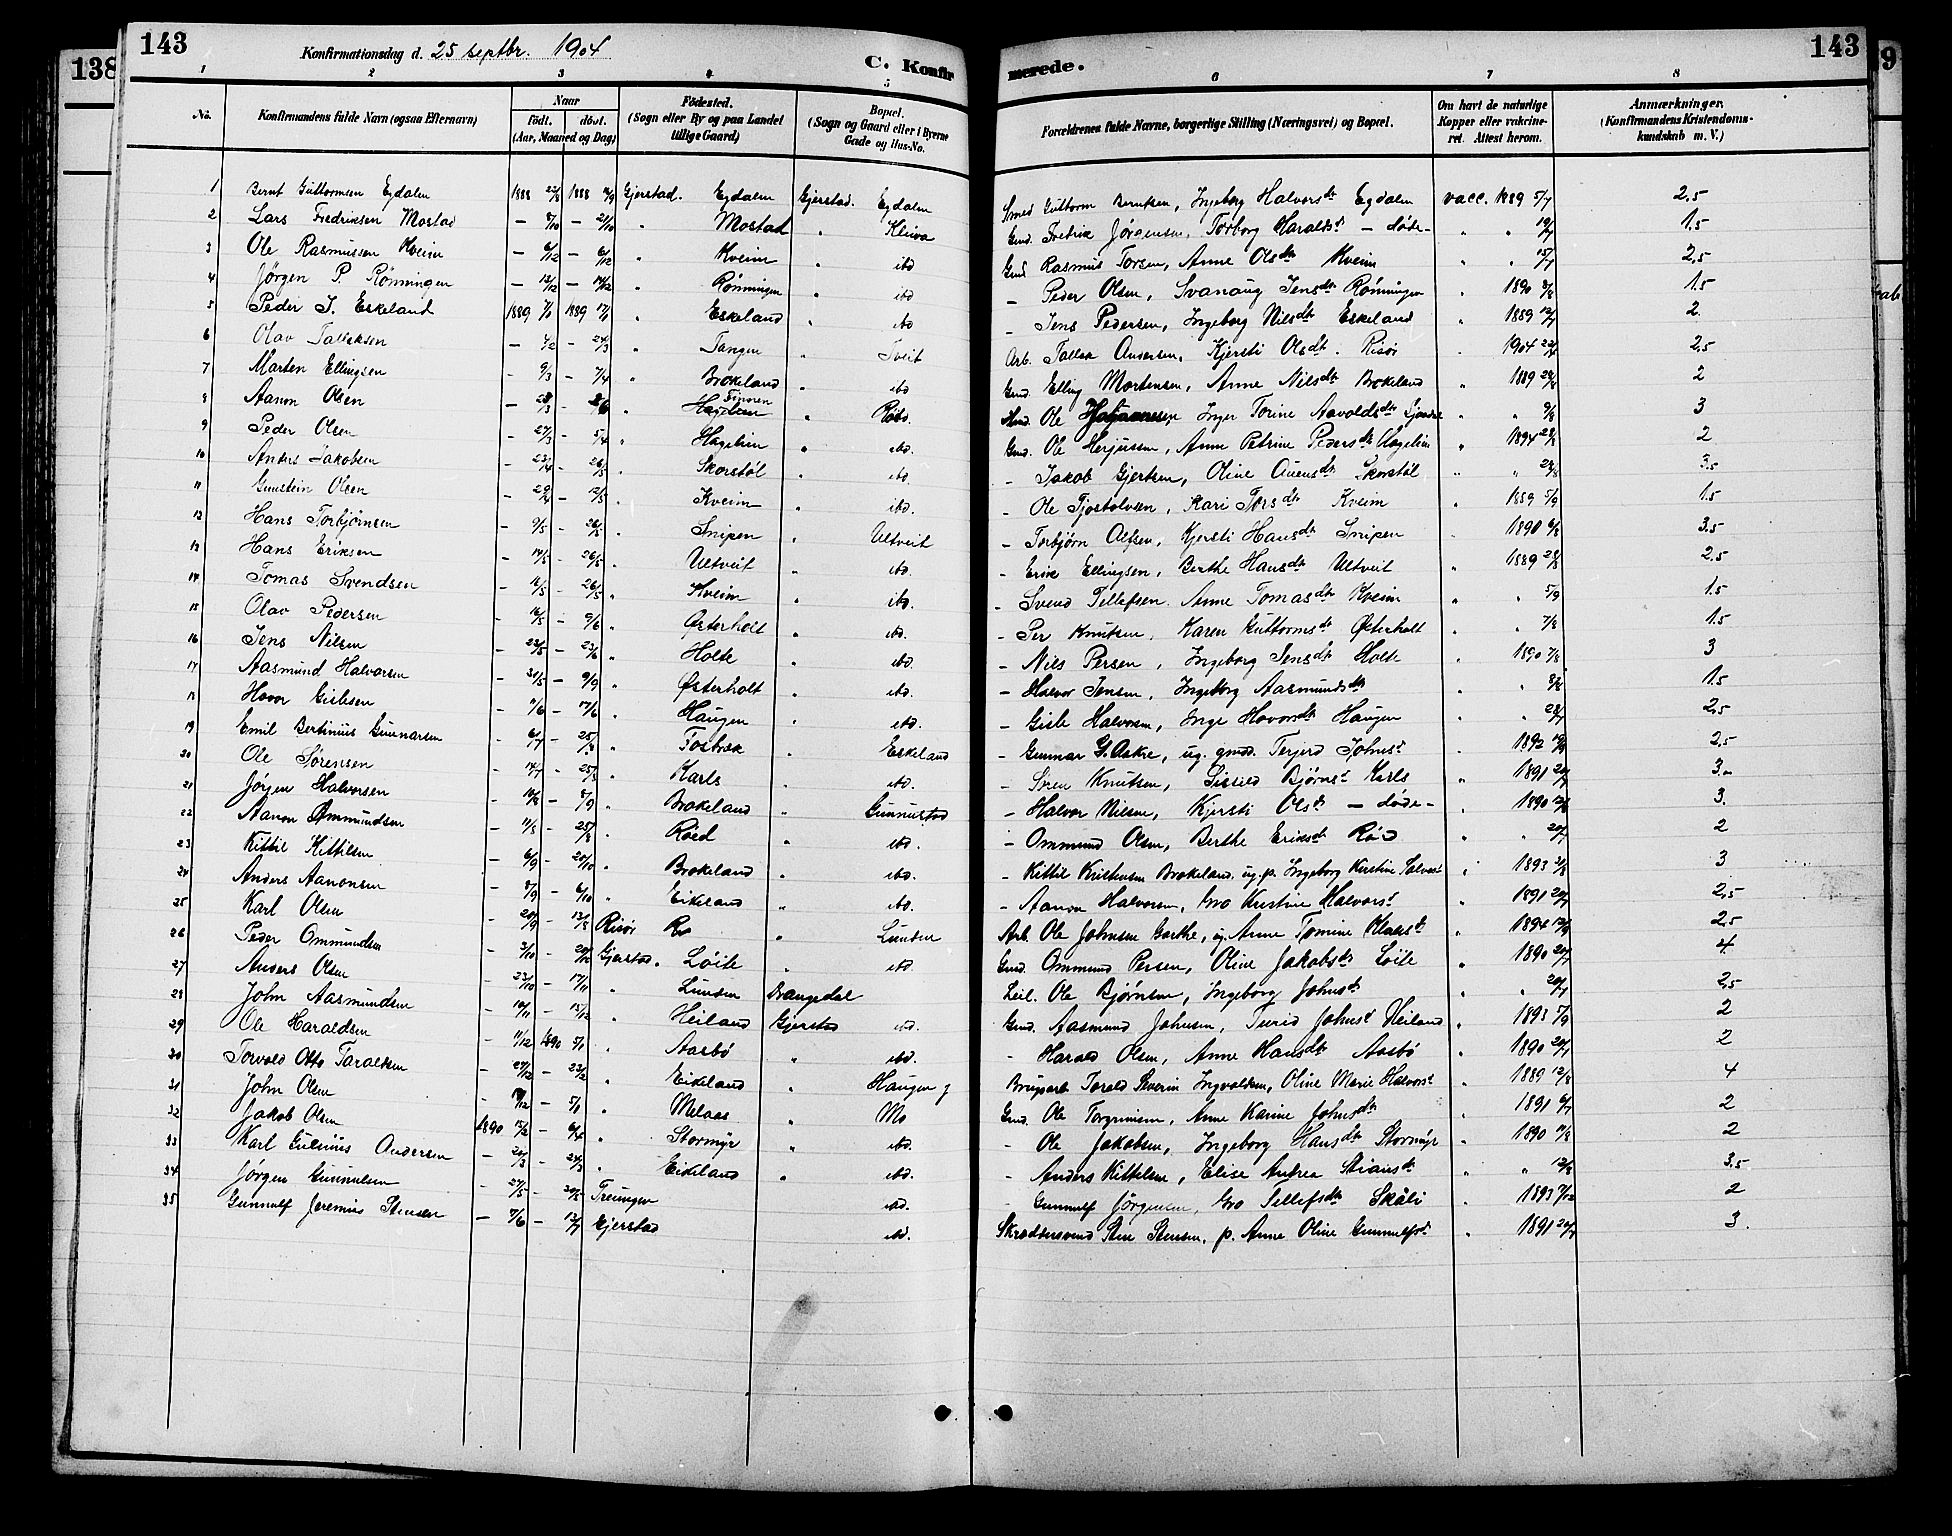 138
143
Konfirmationsdag d. 25 septbr. 1904
C. Konfir
merede.
143
9
1 2 3 4 5 6 7 8
No.
Konfirmandens fulde Navn (ogsaa Efternavn)
Naar
født. døbt.
(Aar, Maaned og Dag)
Fødested.
(Sogn eller By og paa Landet
tillige Gaard)
Bopæl.
(Sogn og Gaard eller i Byerne
Gade og Hus-No.
Forældrenes fulde Navne, borgerlige Stilling (Næringsvei) og Bopæl.
Om havt de naturlige
Kopper eller vakcine-
ret. Attest herom.
Anmærkninger.
(Konfirmandens Kristendoms-
kundskab m. V.)
1 Bernt Guttormsen Egdalen 1888 1888 Gjerstad. Egdalen Gjerstad. Egdalen Smed Guttorm Berntsen, Ingeborg Halvorsdtr Egdalen vacc. 1889 5/7 2,5
2 Lars Fredriksen Mostad – 8/10 – 21/10 " Mostad " Kleiva Gmd. Fredrik Jørgensen, Torborg Haraldsdtr – døde – " " 19/7 1,5
3 Ole Rasmussen Kveim – 6/12 – 6/12 " Kveim " ibd Gmd Rasmus Torsen, Anne Olsdtr Kveim " " 15/7 2,5
4 Jørgen P. Rønningen – 12/12 – 14/12 " Rønningen " ibd – Peder Olsen, Svanaug Jensdtr Rønningen " 1890 8/8 1.5
5 Peder J. Eskeland 1889 7/1 1889 17/1 " Eskeland " ibd – Jens Pedersen, Ingeborg Nilsdtr Eskeland " 1889 12/7 2.
6 Olav Tallaksen – 1/2 – 24/3 " Tangen " Tveit Arb. Tallak Andersen, Kjersti Olsdt. Risør " 1904 2,5
7 Marten Ellingsen – 9/3 – 7/4 " Brokeland " ibd Gmd. Elling Mortensen, Anne Nilsdtr Brokeland " 1889 2
8 Aanon Olsen – 28/3 – " Røed. Ole Inger Torine Aavoldsdtr " " 9/8 3
9 Peder Olsen – 27/3 – 5/4 " Hagelien " ibd. Gmd. Ole Herjussen, Anne Petrine Pedersdtr Hagelien " 1894 2
10 Anders Jakobsen – 23/4 – 26/5 " Skorstøl " ibd – Jakob Gjertsen, Oline Auensdtr Skorstøl " " 3.5
11 Gunstein Olsen – 29/4 – 12/5 " Kveim " ibd. – Ole Tjostolvsen, Kari Torsdtr Kveim " 1889 5/9 1.5
12 Hans Torbjørnsen – 9/5 – 26/5 " Snipen Ultveit – Torbjørn Olfsen, Kjersti Hansdtr Snipen " 6/8 3.5
13 Hans Eriksen – 14/5 – 26/5 " Ultveit " ibd. – Erik Ellingsen, Berthe Hansdtr Ultveit " 1889 2.5
14 Tomas Svendsen – 16/5 – 26/5 " Kveim " ibd. – Svend Tellefsen. Anne Tomasdtr Kveim " " 5/9 1.5
15 Olav Pedersen – 16/5 – 9/6 " Østerholt " ibd. – Per Knutsen, Karen Guttormsdt Østerholt " " 7/8 1.5
16 Jens Nilsen – 23/5 – 23/6 " Holte " ibd. – Nils Persen, Ingeborg Jensdtr Holte " 1890 7/8 3
17 Aasmund Halvorsen – 31/5 – 9/9 " Østerholt " ibd. – Halvor Jensen, Ingeborg Aasmundsdtr " " 8/8 1.5
18 Hovor Gislesen – 11/6 – 17/6 " Haugen " ibd. – Gisle Halvorsen, Inge Hovorsdtr Haugen " " 2,5
19 Emil Bertinius Gunnarsen – 6/7 – 25/8 " Fosbæk " Eskeland – Gunnar G. Aakre, ug. gmd. Terjerd Johnsdt " 1892 2,5
20 Ole Sørensen – 14/7 – 25/8 " Karls " ibd. – Søren Knutsen, Sissild Bjørnst Karls " 1891 20/7 3.
21 Jørgen Halvorsen – 16/8 – 8/9 " Brokeland " Gunnustad – Halvor Nilsen, Kjersti Olsdt – døde – " 1890 3.
22 Aanon Ommundsen – 11/8 – 25/8 " Røed " ibd. – Ommund Olsen, Berthe Eriksdt Rød " " 20/7 2
23 Kittil Kittilsen – 6/9 – 20/10 " Brokeland " ibd. – Kittil Kristensen Brokeland, ug. p. Ingeborg Kirstine Halvorst " 1893 3
24 Anders Aanonsen – 8/9 – 6/10 " Eikeland " ibd. – Aanon Halvorsen, Gro Kristine Halvorst " 1891 20/7 2,5
25 Karl Olsen – 20/9 – Risør " Lunden Arb. Ole Johnsen Garthe, ug. Anne Tomine Klausdt " 1894 2,5
26 Peder Ommundsen – 3/10 – Gjerstad. Løite " ibd Gmd. Ommund Persen, Oline Jakobsdtr Løite " 1890 20/7 4
27 Anders Olsen – 23/10 – 17/11 " Lunden Drangedal Leil. Ole Bjørnsen, Ingeborg Johnsdt " " 20/7 2,5
28 John Aasmundsen – 10/11 – 15/12 " Heiland Gjerstad ibd. Gmd. Aasmund Johnsen, Turid Johnst Heiland " 1893 5/9 2
29 Ole Haraldsen – 11/12 1890 5/1 " Aasbø " ibd. – Harald Olsen, Anne Hansdtr Aasbø " 1890 20/7 2
30 Torvald Otto Taraldsen – 27/12 – 23/2 " Eikeland " Haugen g Brugsarb Torald Severin Ingvaldsen, Oline Marie Halvorst " 1889 12/8 4
31 John Olsen – – 5/1 " Melaas " Mo Gmd. Ole Torgrimsen, Anne Karine Johnsdtr " 1891 6/7 2
32 Jakob Olsen 1890 15/2 – 6/4 " Stormyr " ibd. – Ole Jakobsen, Ingeborg Hansdtr Stormyr " 1890 11/8 2
33 Karl Gulenius Andersen – 20/3 – 24/3 " Eikeland " ibd. – Anders Kittelsen, Elise Andrea Stiansdtr " " 12/8 3.5
34 Jørgen Gunnulsen – 27/5 – 20/5 Treungen ibd. – Gunnulf Jørgensen, Gro Tellefsdtr Skåli " 1893 7/12 2
35 Gunnulf Jeremius Stensen – 7/6 – 13/7 Gjerstad ibd. Skræddersvend Sten Stensen, p. Anne Oline Gunnulfsdt " 1891 20/7 3.